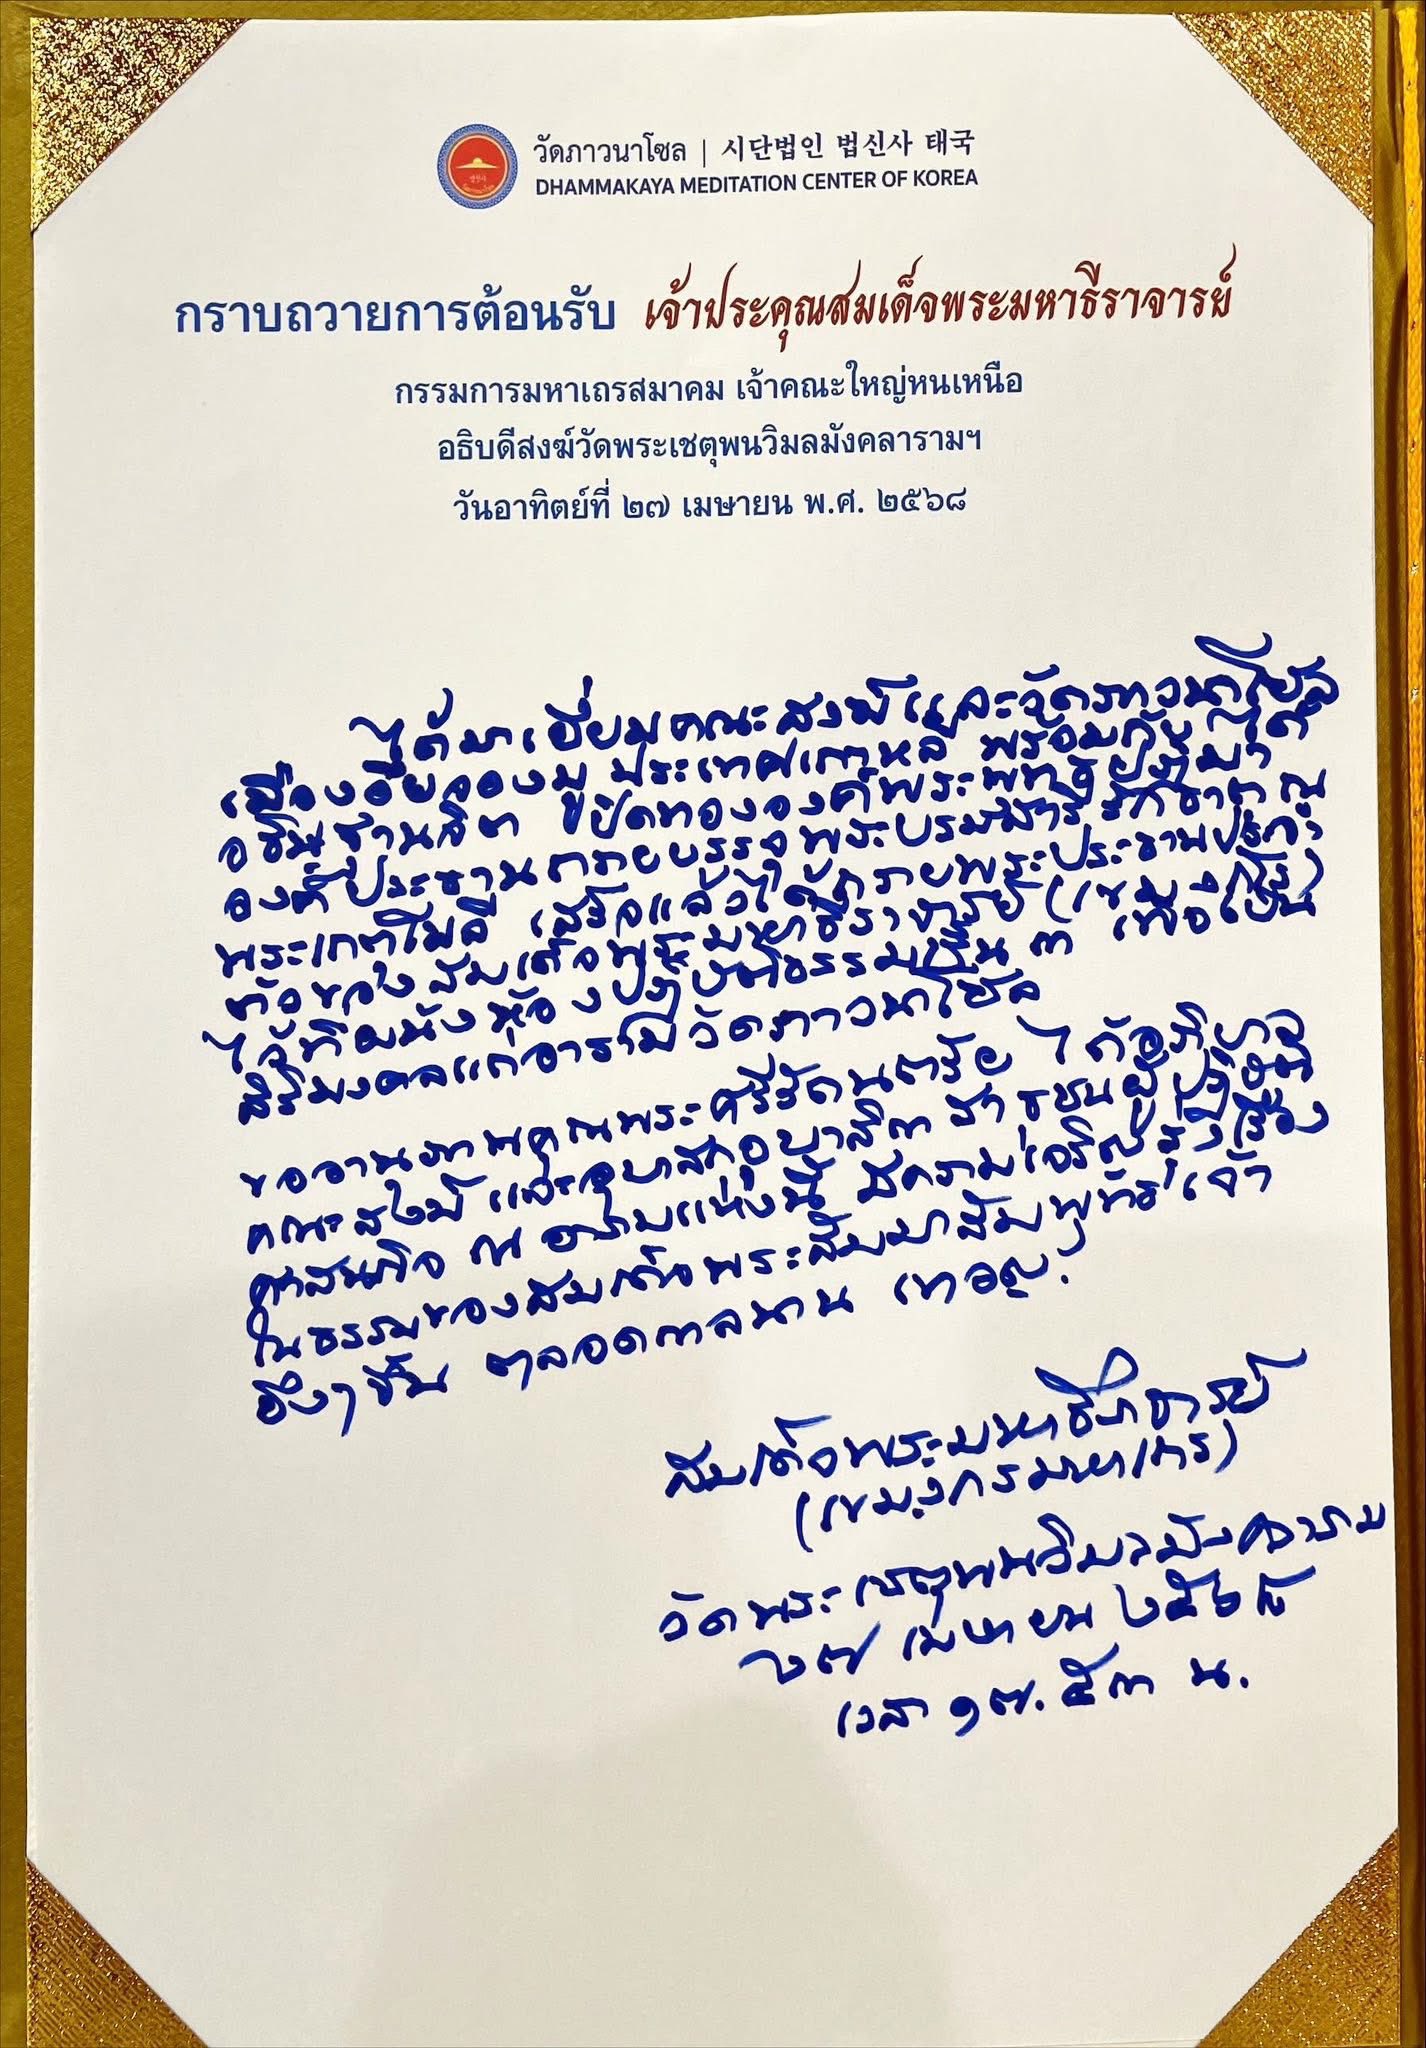 วัดภาวนาโซล | 시단법인 법신사 태국
DHAMMAKAYA MEDITATION CENTER OF KOREA
กราบถวายการต้อนรับ เจ้าประคุณสมเด็จพระมหาธีราจารย์
กรรมการมหาเถรสมาคม เจ้าคณะใหญ่หนเหนือ
อธิบดีสงฆ์วัดพระเชตุพนวิมลมังคลารามฯ
วันอาทิตย์ที่ ๒๗ เมษายน พ.ศ. ๒๕๖๘
ได้มาเยี่ยมคณะสงฆ์และวัดภาวนาโซล
เมือง ประเทศเกาหลี พร้อมกับได้
อธิษฐานจิต ปิดทององค์พระพุทธปฏิมา
องค์ประธานถวายบรรจุพระบรมสารีริกธาตุ ณ
พระเกตุโมลี เสร็จแล้วได้ถวายพระประธานประจำ
ตัวของสมเด็จพระมหาธีราจารย์
ไว้ที่ผนังห้องปฏิบัติธรรมชั้น ๓ เพื่อเป็น
สิริมงคลแก่อารามวัดภาวนาโซล
ขออานุภาพคุณพระศรีรัตนตรัย ได้อภิบาล
คณะสงฆ์ และอุบาสกอุบาสิกา สาธุชนผู้ปฏิบัติ
ศาสนกิจ ณ อารามแห่งนี้ มีความเจริญรุ่งเรือง
ในธรรมของสมเด็จพระสัมมาสัมพุทธเจ้า
ยิ่งๆขึ้น ตลอดกาลนาน เทอญ.
สมเด็จพระมหาธีราจารย์
(เขมงฺกรมหาเถร)
วัดพระเชตุพนวิมลมังคลาราม
๒๗ เมษายน ๒๕๖๘
เวลา ๑๗.๕๓ น.